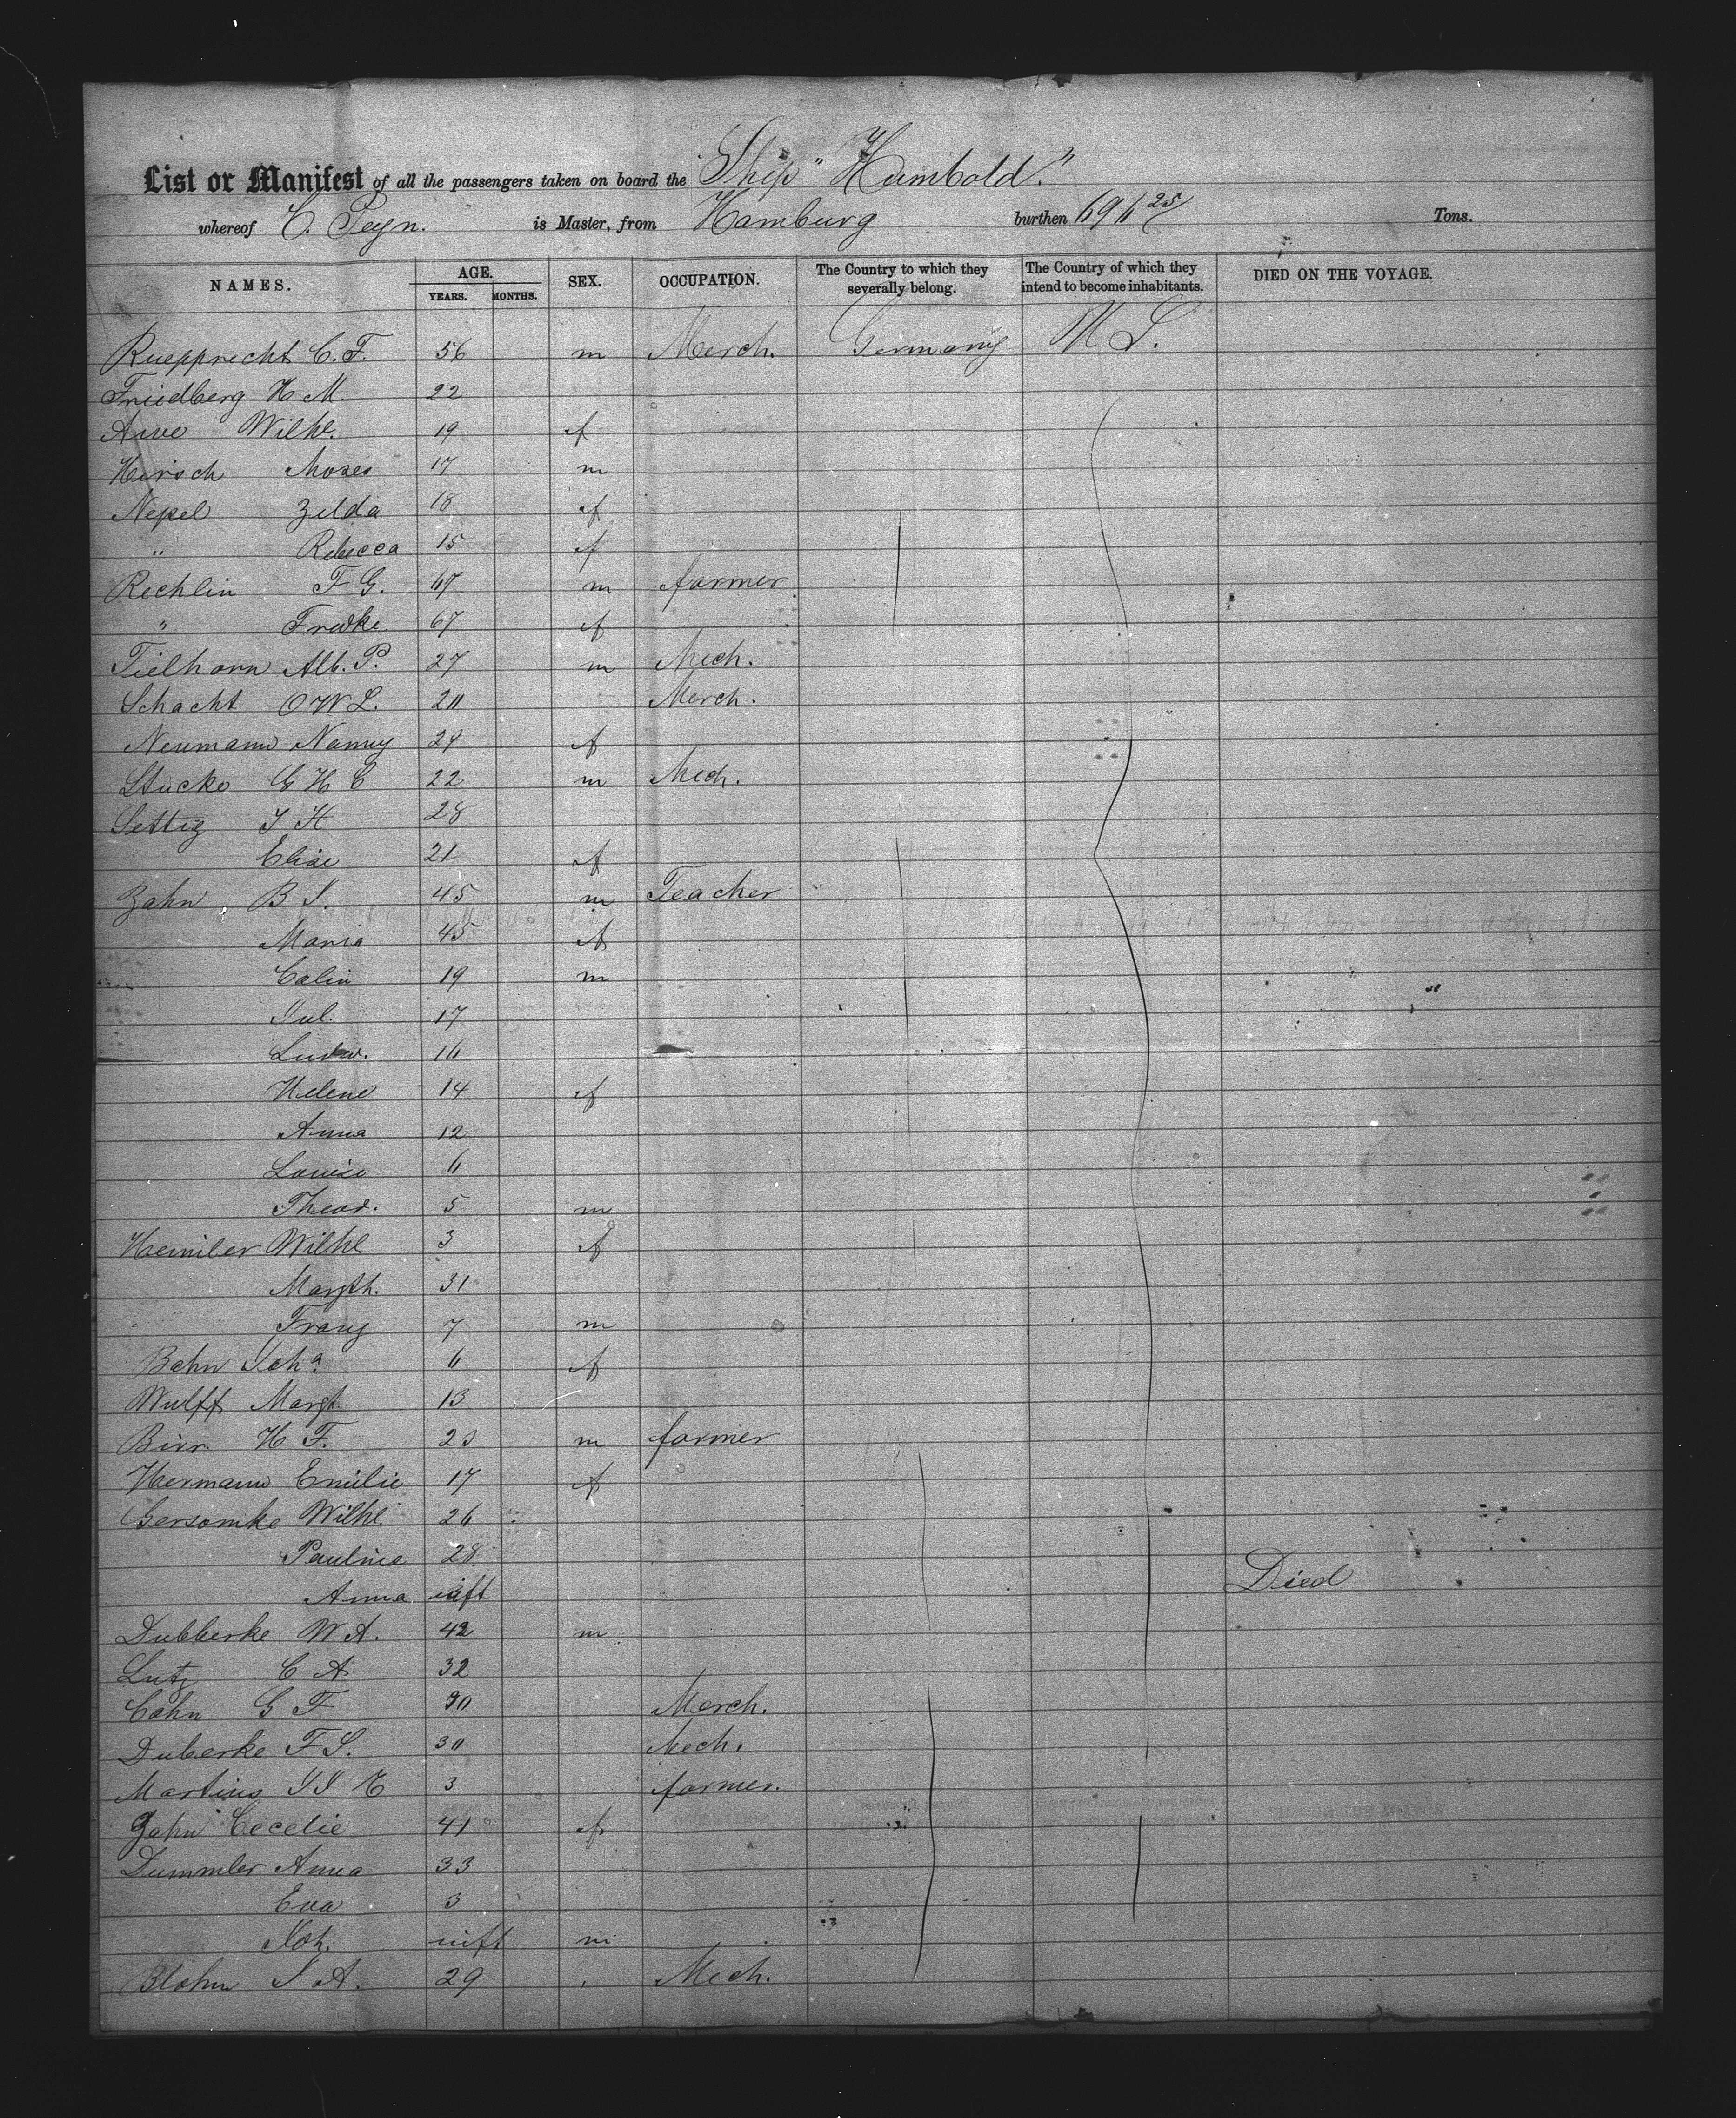 List or Manifest of all the passengers taken on board the Ship "Humbold."
whereof C. Peyn. is Master, from Hamburg burthen 696 25/ Tons.
NAMES. AGE. YEARS. MONTHS. SEX. OCCUPATION. The Country to which they severally belong. The Country of which they intend to become inhabitants. DIED ON THE VOYAGE.
Ruepprecht C. F. 56 m Merch. Germany U S.
Friedberg H M. 22
Wilhl. 19 f
Hirsch Moses 17 m
Nepel Zelda 18 f
" Rebecca 15 f
Rechlin F G. 67 m farmer
" Fredke 67 f
Tielhorn Alb. P. 27 m Mech.
Schacht O W L. 20 Merch.
Neumann Nanny 24 f
Stucke G H C 22 m Mech.
Settig J H 28
Elise 21 f
Zahn B S. 45 m Teacher
Maria 45 f
Calin 19 m
Jul. 17
Ludw. 16
Helene 14 f
Anna 12
Louise 6
Theod. 5 m
Wilhl 3 f
Margth. 31
Franz 7 m
Behn Joha 6 f
Wulff Margt 13
Birr. H F. 23 m farmer
Hermann Emilie 17 f
Gersomke Wilhl. 26
Pauline 28
Anna inft Died
Dubberke W A. 42 m
Lutz C A 32
Cohn G F 30 Merch.
Duberke F S. 30 Mech.
Martins J J E 3 farmer.
Zahn Cecelie 41 f
Dummler Anna 33
Eva 3
Joh. inft m
Blohm J A. 29 Mech.